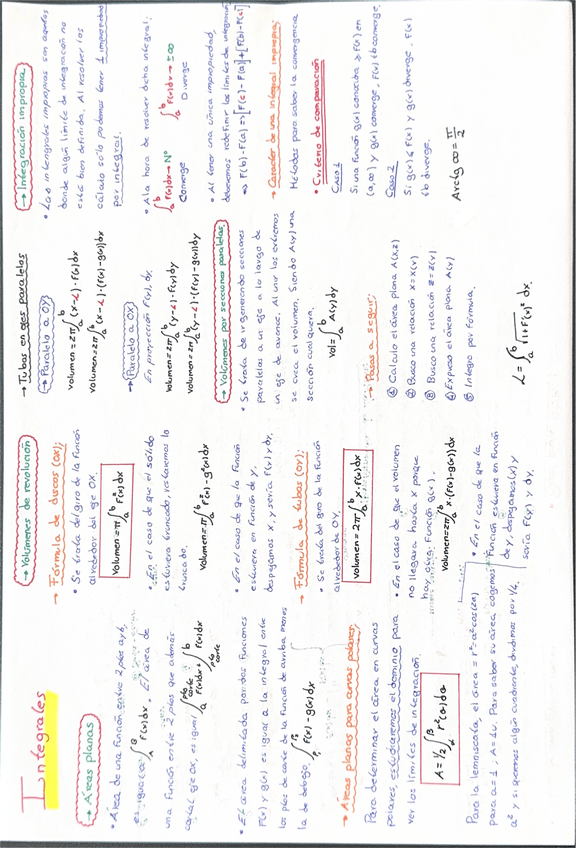 Integrales
→ Áreas planas
• Área de una función entre 2 ptos a y b,
es igual a ∫ F(x)dx. El área de
una función entre 2 ptos que además
corta el eje OX, es igual ∫ F(x)dx + ∫ F(x)dx
• El área delimitada por dos funciones
F(x) y g(x) es igual a la integral entre
los ptos de corte de la función de arriba menos
la de debajo. ∫ F(x) - g(x) dx
→ Áreas planas para curvas polares
Para determinar el área en curvas
polares, estudiaremos el dominio para
ver los límites de integración.
A = 1/2 ∫ r²(α) dα
Para la lemniscata, el área = r² = a² cos(2α)
para a = 1, A = 1u. Para saber su área cogemos
a² y si queremos algún cuadrante, dividimos por 1/4.
→ Volúmenes de revolución
→ Fórmula de discos (OX):
• Se trata del giro de la función
alrededor del eje OX.
Volumen = π ∫ₐᵇ F²(x) dx
• En el caso de que el sólido
estuviera truncado, restaremos lo
truncado.
Volumen = π ∫ₐᵇ F²(x) - g²(x) dx
• En el caso de que la función
estuviera en función de y,
despejamos x, y sería F(y) y dy.
→ Fórmula de tubos (OY):
• Se trata del giro de la función
alrededor de OY.
Volumen = 2π ∫ₐᵇ x · F(x) dx
• En el caso de que el volumen
no llegara hasta x porque
hay otra función g(x).
Volumen = 2π ∫ₐᵇ x · (F(x) - g(x)) dx
• En el caso de que la
función estuviera en función
de y, despejamos (x) y
sería F(y) y dy.
→ Tubos en ejes paralelos
→ Paralelo a OY
Volumen = 2π ∫ₐᵇ (x-L) · F(x) dx
Volumen = 2π ∫ₐᵇ (x-L) · (F(x) - g(x)) dx
→ Paralelo a OX
En proyección F(y), dy.
Volumen = 2π ∫ₐᵇ (y-L) · F(y) dy
Volumen = 2π ∫ₐᵇ (y-L) · (F(y) - g(y)) dy
→ Volúmenes por secciones paralelas
• Se trata de ir generando secciones
paralelas a un eje a lo largo de
un eje de avance. Al unir los extremos
se crea el volumen. Siendo A(y) una
sección cualquiera.
Vol = ∫ₐᵇ A(y) dy
→ Pasos a seguir:
① Calculo el área plana A(x,z)
② Busco una relación x = x(y)
③ Busco una relación z = z(y)
④ Expreso el área plana A(y)
⑤ Integro por fórmula.
L = ∫ₐᵇ √(1 + F'(x)² dx
→ Integración impropia
• Las integrales impropias son aquellas
donde algún límite de integración no
está bien definida. Al resolver los
cálculo sólo podemos tener 1 impropiedad
por integral.
• A la hora de resolver dicha integral:
∫ₐᵇ F(x)dx → Nº ∫ₐᵇ F(x)dx → ±∞
Converge Diverge
• Al tener una única impropiedad,
deberemos redefinir los límites de integración
⇒ F(b) - F(a) ⇒ [F(c) - F(a)] + [F(b) - F(c)]
→ Carácter de una integral impropia:
Métodos para saber la convergencia
• Criterio de comparación
Caso 1
Si una función g(x) conocida ≥ F(x) en
(a, ∞) y g(x) converge, F(x) tb converge.
Caso 2
Si g(x) ≤ F(x) y g(x) diverge, F(x)
tb diverge.
Arctg ∞ = π/2